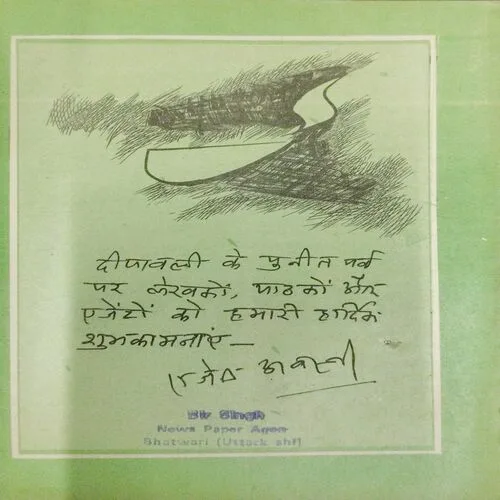 दीपावली के पुनीत पर्व
पर लेखकों, पाठकों और
एजेंटों को हमारी हार्दिक
शुभकामनाएं—
राजेन्द्र अवस्थी
Bir Singh
News Paper Agen
Bhatwari (Uttack shi)